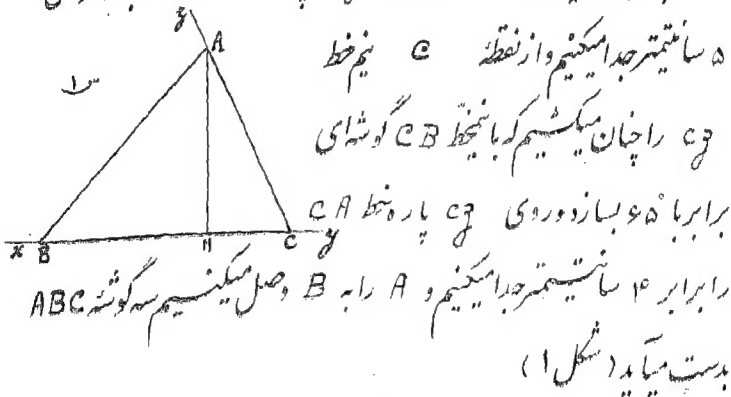 ۵ سانتیمتر جدا میکنیم و از نقطهٔ C نیم خط
cz را چنان میکشیم که با نیمخط CB گوشه‌ای
برابر با ۶۵° بسازد و روی cz پاره خط CA
را برابر ۴ سانتیمتر جدا میکنیم و A را به B وصل میکنیم سه گوشهٔ ABC
بدست میآید (شکل ۱)
z
A
ش ۱
x B H C y